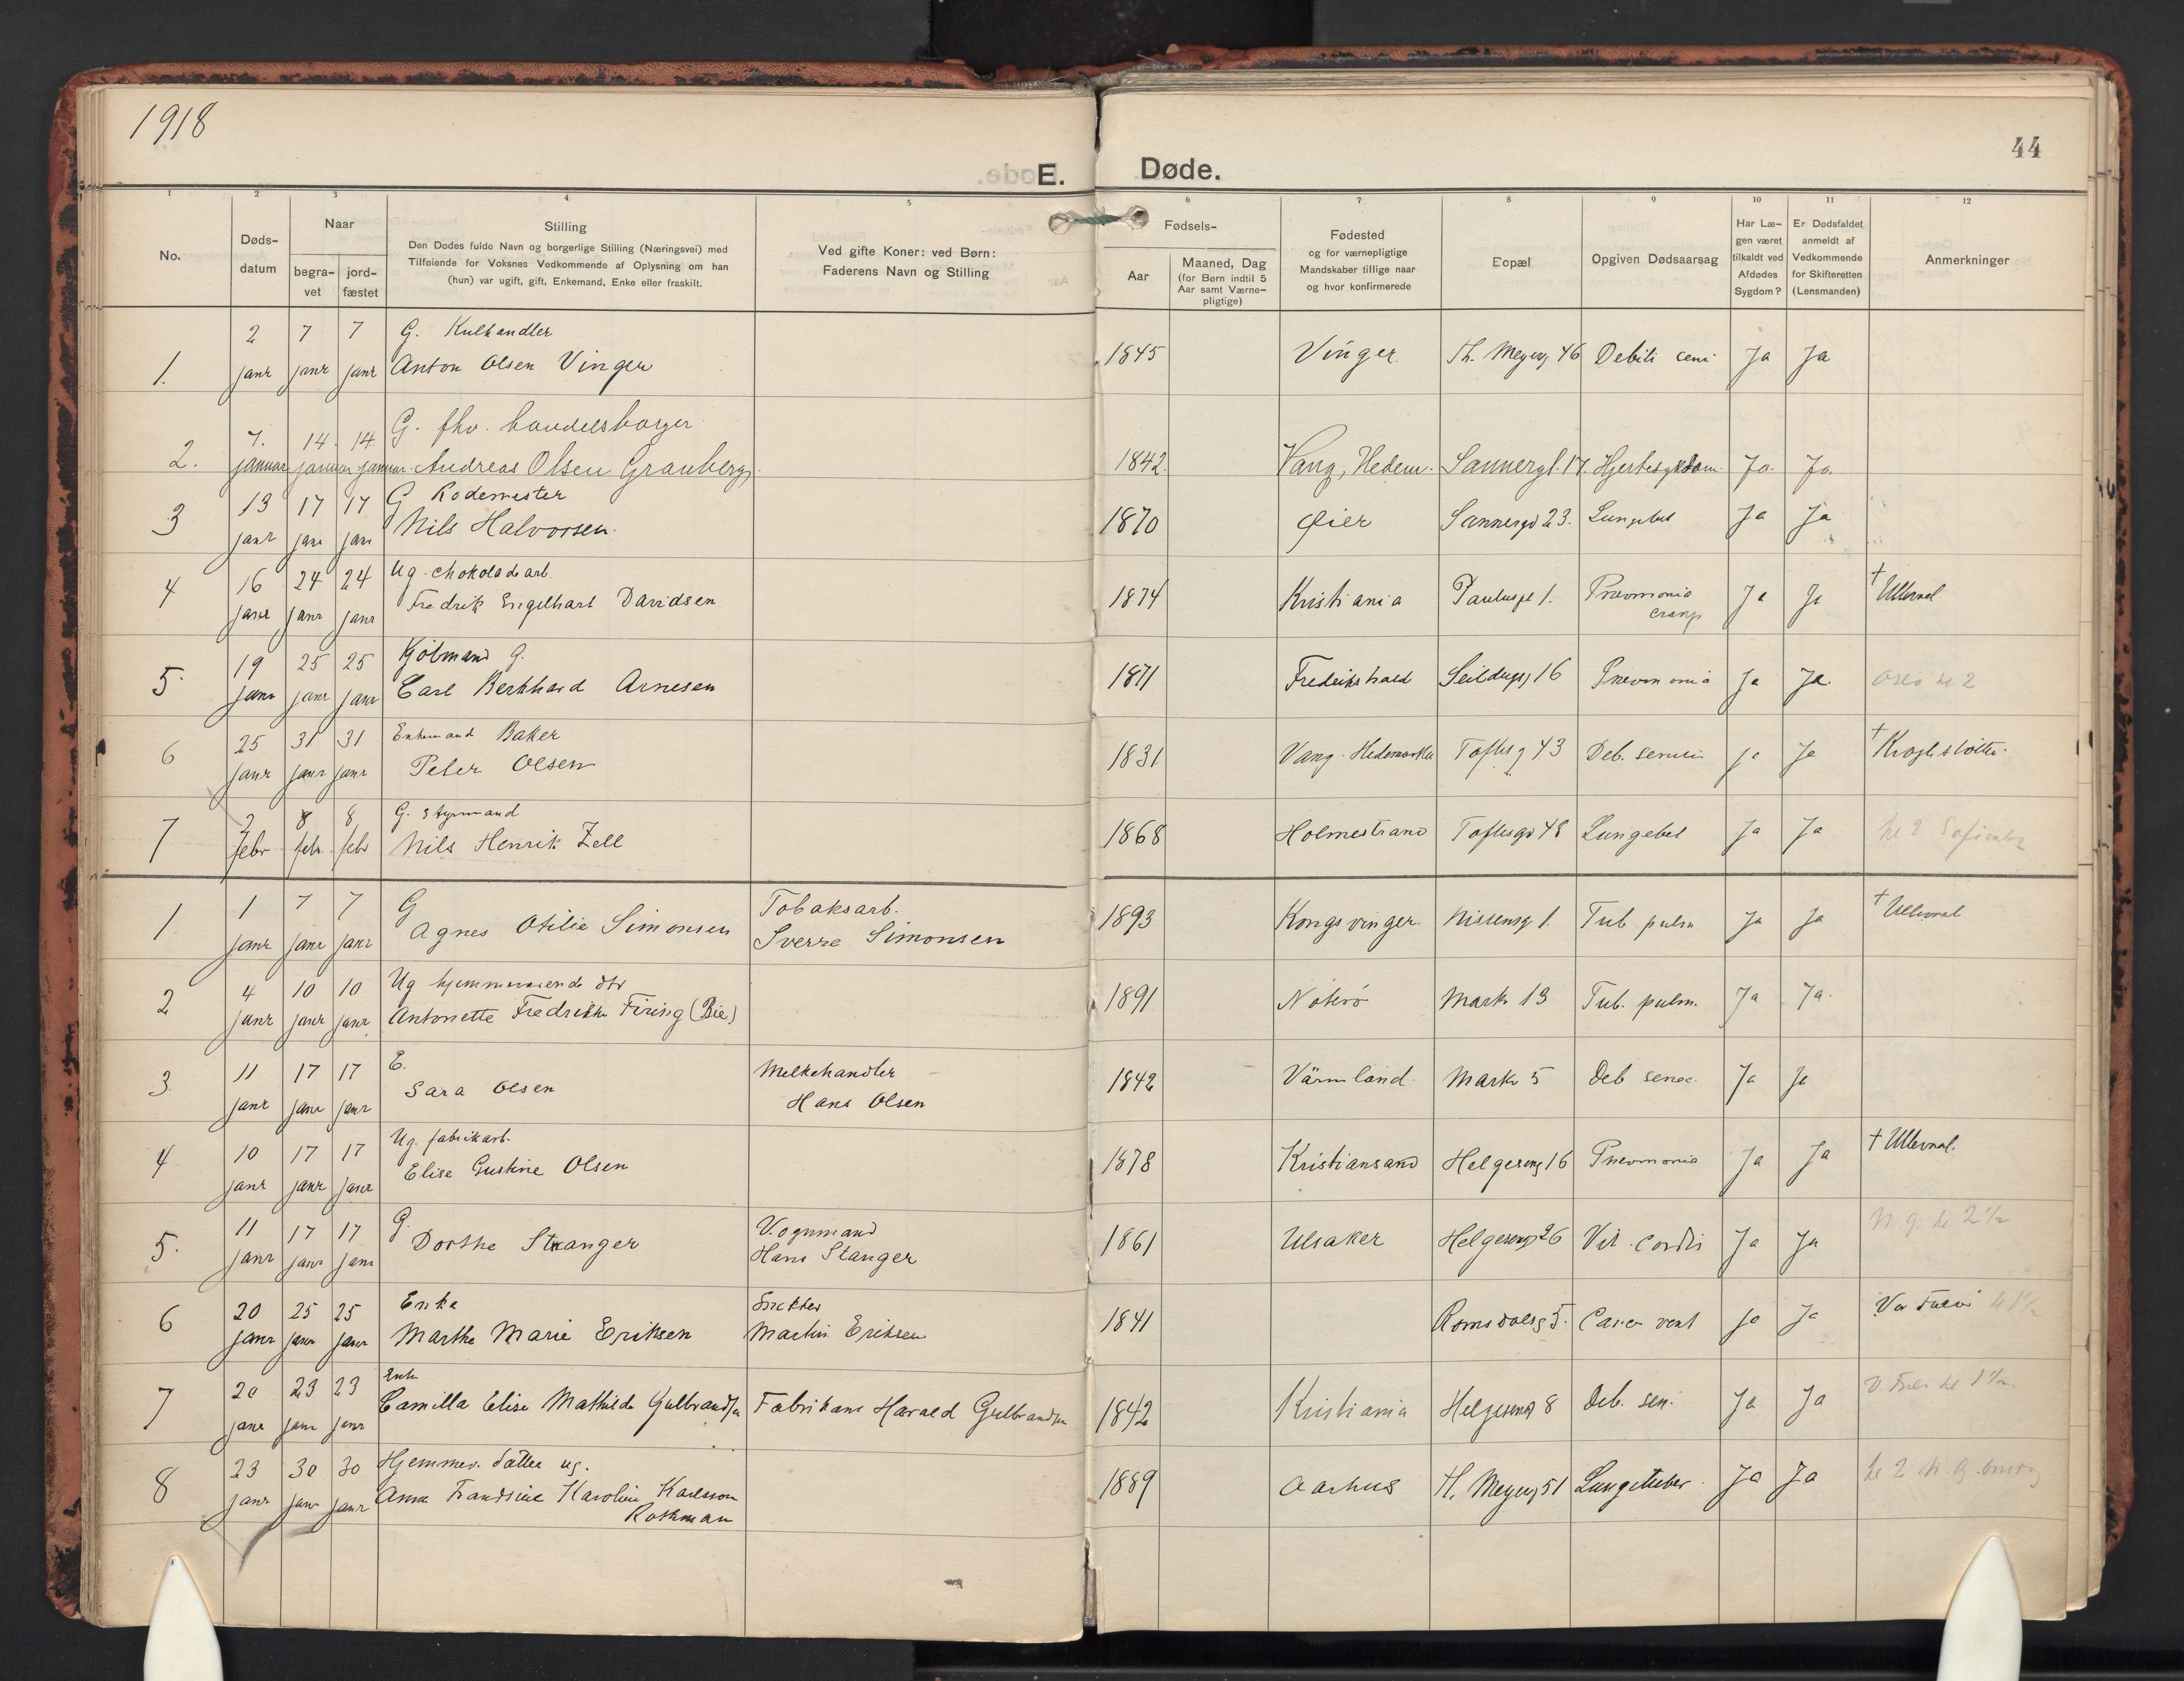 1918
44
E. Døde.
1 2 3 4 5 6 7 8 9 10 11 12
No.
Døds-
datum
Naar
begra-
vet
jord-
fæstet
Stilling
Den Dødes fulde Navn og borgerlige Stilling (Næringsvei) med
Tilføiende for Voksnes Vedkommende af Oplysning om han
(hun) var ugift, gift, Enkemand, Enke eller fraskilt.
Ved gifte Koner: ved Børn:
Faderens Navn og Stilling
Fødsels-
Aar
Maaned, Dag
(for Børn indtil 5
Aar samt Værne-
pligtige)
Fødested
og for værnepligtige
Mandskaber tillige naar
og hvor konfirmerede
Bopæl
Opgiven Dødsaarsag
Har Læ-
gen været
tilkaldt ved
Afdødes
Sygdom?
Er Dødsfaldet
anmeldt af
Vedkommende
for Skifteretten
(Lensmanden)
Anmerkninger
2 7 7 G. Kulhandler
1. janr janr janr Anton Olsen Vinger 1845 Vinger Th. Meyersg 46 Debili seni Ja Ja
7. 14. 14. G. fhv. handelsborger
2. januar januar januar Andreas Olsen Granberg. 1842. Vang, Hedem. Sannergt. 17. Hjertesykdom. Ja. Ja.
13 17 17 G Rodemester
3 janr janr janr Nils Halvorsen. 1870 Øier Sannergd 23. Lungebet Ja Ja
16 24 24 Ug. chokoladearb.
4 janr janr janr Fredrik Engelhart Davidsen 1874 Kristiania Paulusgt 1. Pneumonia Ja Ja † Ullevaal
croup
19 25 25 Kjøbmand g.
5. janr janr janr Carl Berhhard Arnesen 1871 Fredrikshald Seildugsg 16 Pneumonia Ja Ja. Oslo kl 2
25 31 31 Enkemand Baker
6 janr janr janr Peter Olsen 1831 Vang Hedemarken Toftesg 43 Deb. senilis Ja Ja † Kroghstøtte.
2 8 8 G. Styrmand
7 febr febr febr Nils Henrik Zell 1868 Holmestrand Toftesgd 48 Lungebet Ja Ja kl 2
1 7 7 G Tobaksarb.
1 janr janr janr Agnes Otilie Simonsen Sverre Simonsen 1893 Kongsvinger. Nissensg 1. Tub pulm Ja Ja † Ullevaal
4 10 10 Ug hjemmeværende dtr
2 janr janr janr Antonette Fredrikke Firing (Bie) 1891 Nøterø Markv 13 Tub. pulm. Ja Ja.
11 17 17 E. Melkehandler
3 janr janr janr Sara Olsen Hans Olsen 1842 Värmland Markv 5 Deb senec. Ja Ja
10 17 17 Ug. fabrikarb.
4 janr janr janr Elise Gustine Olsen 1878 Kristiansand Helgesensg 16 Pneumonia Ja Ja † Ullevaal.
11 17 17 G. Vognmand
5. janr janr janr Dorthe Stranger Hans Stanger 1861 Ulsaker Helgesensg 26 Vit. cordis Ja Ja N. g. kl 2 1/2
20 25 25 Enke Snekker
6 janr janr janr Marthe Marie Eriksen Martin Eriksen 1841 Romsdalsg 5. Cancer vent Ja Ja
20 23 23 Enke
7 janr janr janr Camilla Elise Mathilde Gulbrandsen Fabrikant Harald Gulbrandsen 1842 Kristiania Helgesensg 8 Deb. sen. Ja Ja
23 30 30 Hjemmev. datter ug.
8 janr janr janr Anna Frandsine Karoline Karlsson 1889 Aarhus H. Meyersg 51 Lungetuber. Ja Ja kl 2
Rothman